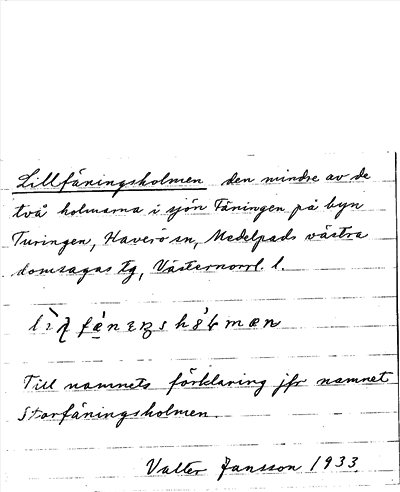 Lillfäningsholmen den mindre av de
två holmarna i sjön Fäningen på byn
Turingen, Haverö sn, Medelpads västra
domsagas tg, Västernorrl. l.
Till namnets förklaring jfr namnet
Storfäningsholmen.
Valter Jansson 1933